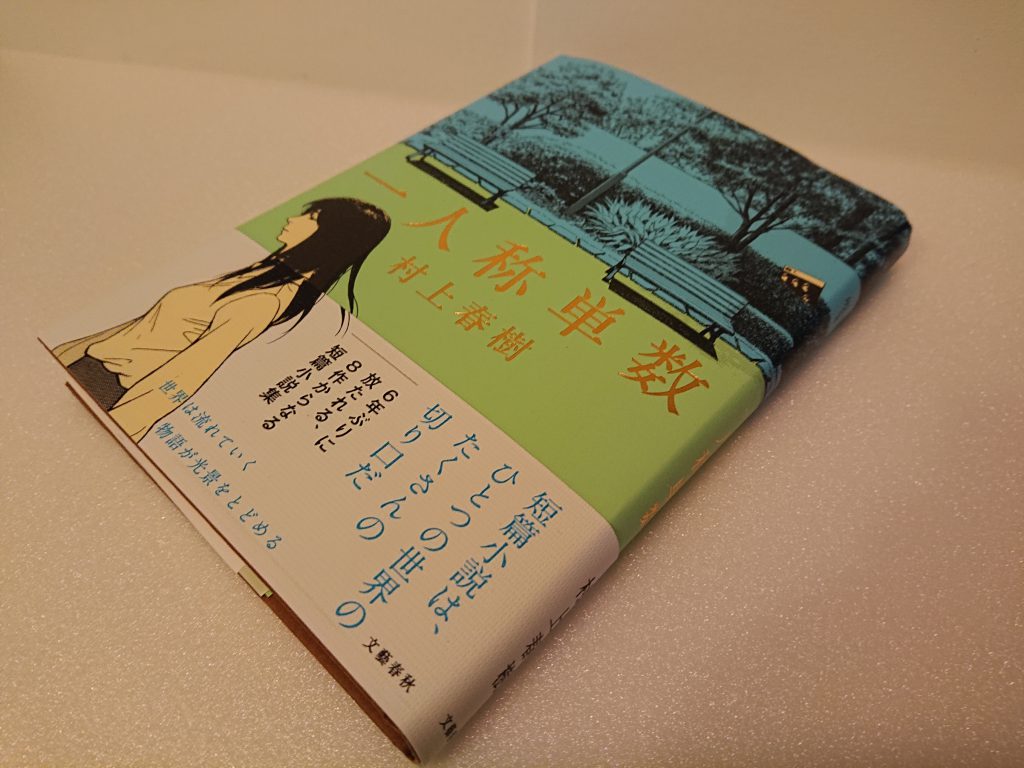 一人称単数
村上春樹
短篇小説は、
ひとつの世界の
たくさんの
切り口だ
6年ぶりに
放たれる、
8作からなる
短篇小説集
世界は流れていく
物語が光景をとどめる
文藝春秋
村上春樹